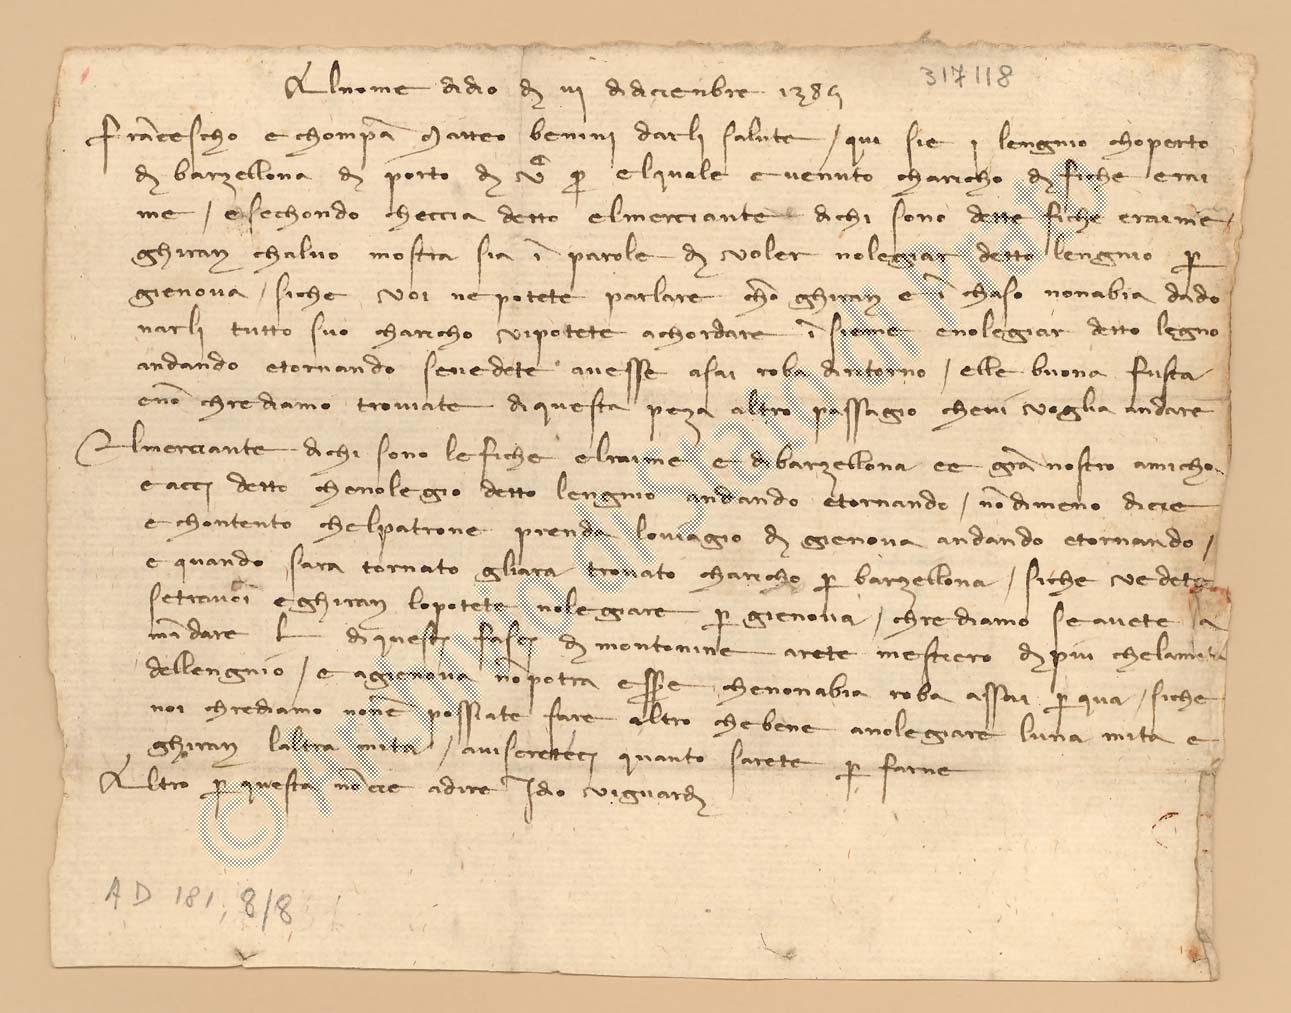 317118
Al nome didio di vi didicienbre 1385
Francescho e chompa Matteo benini darli salute / qui sie i lengnio choperto
di barzellona di porto di p elquale e venuto charicho di fiche e rai
me / e sechondo checcia detto elmerciante dichi sono dette fiche eraime /
ghiran chalvo mostra sia i parole di voler nolegiar detto lengnio p
gienova / siche voi ne potete parlare cho ghiran e i chaso nonabia dado
narli tutto suo charicho vipotete achordare i sieme enolegiar detto legno
andando etornando se vedete avesse asai roba diritorno / elle buona fusta
eno chrediamo troviate diquesta peza altro passagio chevi voglia andare
Elmerciante dichi sono le fiche elraime e dibarzellona ee gra nostro amicho
e acci detto chenolegio detto lengnio andando etornando / nodimeno dicie
e chontento chelpatrone prenda loviagio di gienova andando etornando /
e quando sara tornato gliara trovato charicho p barzellona / siche vedete
setravoi eghiran lopotete nolegiare p gienova / chrediamo se avete a
madare L diquesti fasci di montonine arete mestiero di piu chelamita
dellengnio / e agienova nopotra esse chenonabia roba assai p qua / siche
noi chrediamo none possiate fare altro chebene anolegiare luna mita e
ghiran laltra mita / avisereteci quanto sarete p farne
Altro p questa nocie adire Idio viguardi
AD 181, 8/8